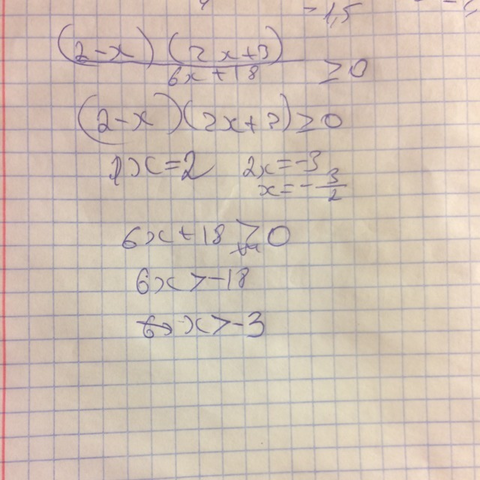 -1,5
(2-x)(2x+3)
6x+18 ≥0
(2-x)(2x+3)≥0
1)x=2 2x=-3
x=-3/2
6x+18>0
6x>-18
x>-3